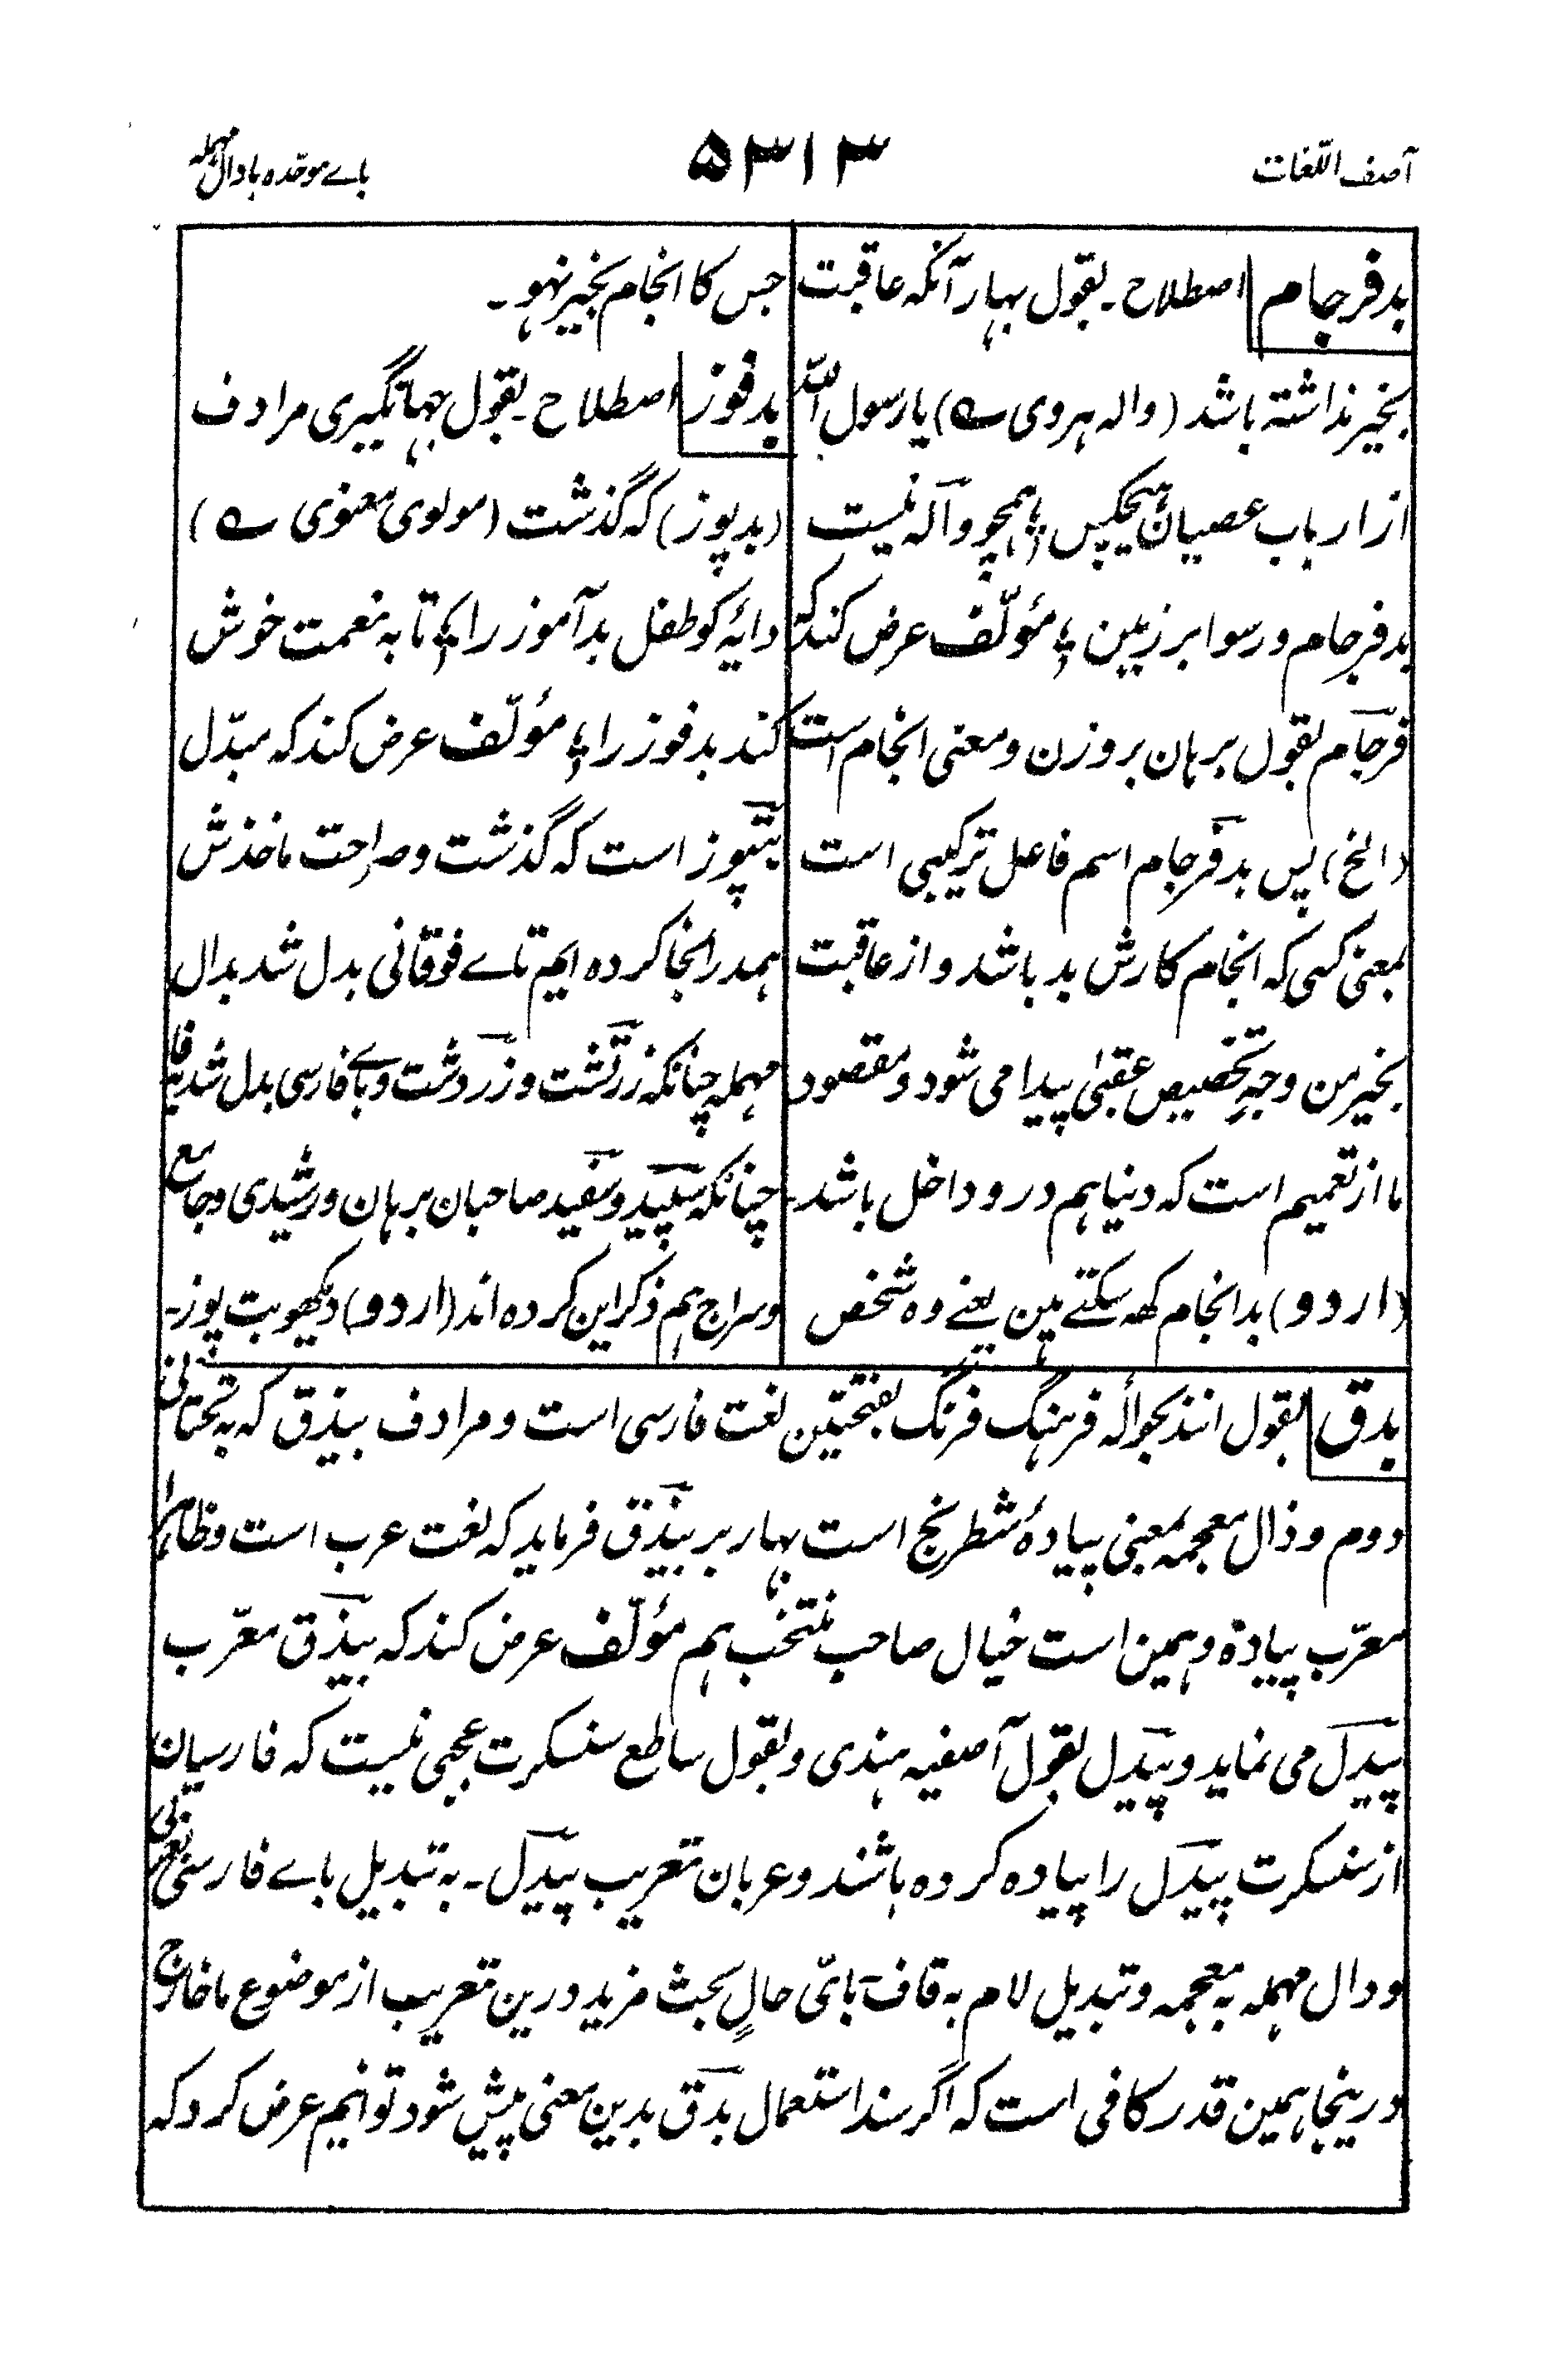 آصف اللّغات
۵۳۱۳
باے موحّدہ با دال مہملہ
بد فرجام اصطلاح ۔ بقول بہار آنکہ عاقبت
بخیر نداشتہ باشد (والہ ہروی ؎) یا رسول اللہ
از ارباب عصیان ہیچکس ؛ ہمچو والہ نیست
بد فرجام و رسوا بر زمین ؛ مؤلّف عرض کند کہ
فرجام بقول برہان بر وزن و معنی انجام است
(الخ) پس بد فرجام اسم فاعل ترکیبی است
بمعنی کسی کہ انجام کارش بد باشد و از عاقبت
بخیر من وجہٍ تخصیص عقبیٰ پیدا می شود و مقصود
ما از تعمیم است کہ دنیا ہم درو داخل باشد ۔
(اردو) بد انجام کہہ سکتے ہین یعنے وہ شخص
جس کا انجام بخیر نہو ۔
بد فوز اصطلاح ۔ بقول جہانگیری مرادف
(بد پوز) کہ گذشت (مولوی معنوی ؎)
دایۂ کو طفل بد آموز را ؛ تا بہ نعمت خوش
کند بد فوز را ؛ مؤلّف عرض کند کہ مبدّل
بتپوز است کہ گذشت و صراحت ماخذش
ہمدرانجا کردہ ایم تاے فوقانی بدل شد بدال
مہملہ چنانکہ زرتشت و زردشت و باے فارسی بدل شد بفا
چنانکہ سپید و سفید صاحبان برہان و رشیدی و جامع
و سراج ہم ذکر این کردہ اند (اردو) دیکھو بت پوز ۔
بدق بقول انند بحوالۂ فرہنگ فرنگ بفتحتین لغت فارسی است و مرادف بیذق کہ بہ تحتانی
دوم و ذال معجمہ بمعنی پیادۂ شطرنج است بہار بر بیذق فرماید کہ لغت عرب است و ظاہراً
معرّب پیادہ و ہمین است خیال صاحب منتخب ہم مؤلّف عرض کند کہ بیذق معرّب
پیدل می نماید و پیدل بقول آصفیہ ہندی و بقول ساطع سنسکرت عجبی نیست کہ فارسیان
از سنسکرت پیدل را پیادہ کردہ باشند و عربان تعریب پیدل ۔ بہ تبدیل باے فارسی بعربی
و دال مہملہ بہ معجمہ و تبدیل لام بہ قاف بایّ حالٍ بحث مزید درین تعریب از موضوع ما خارج
درینجا ہمین قدر کافی است کہ اگر سند استعمال بدق بدین معنی پیش شود توانیم عرض کرد کہ